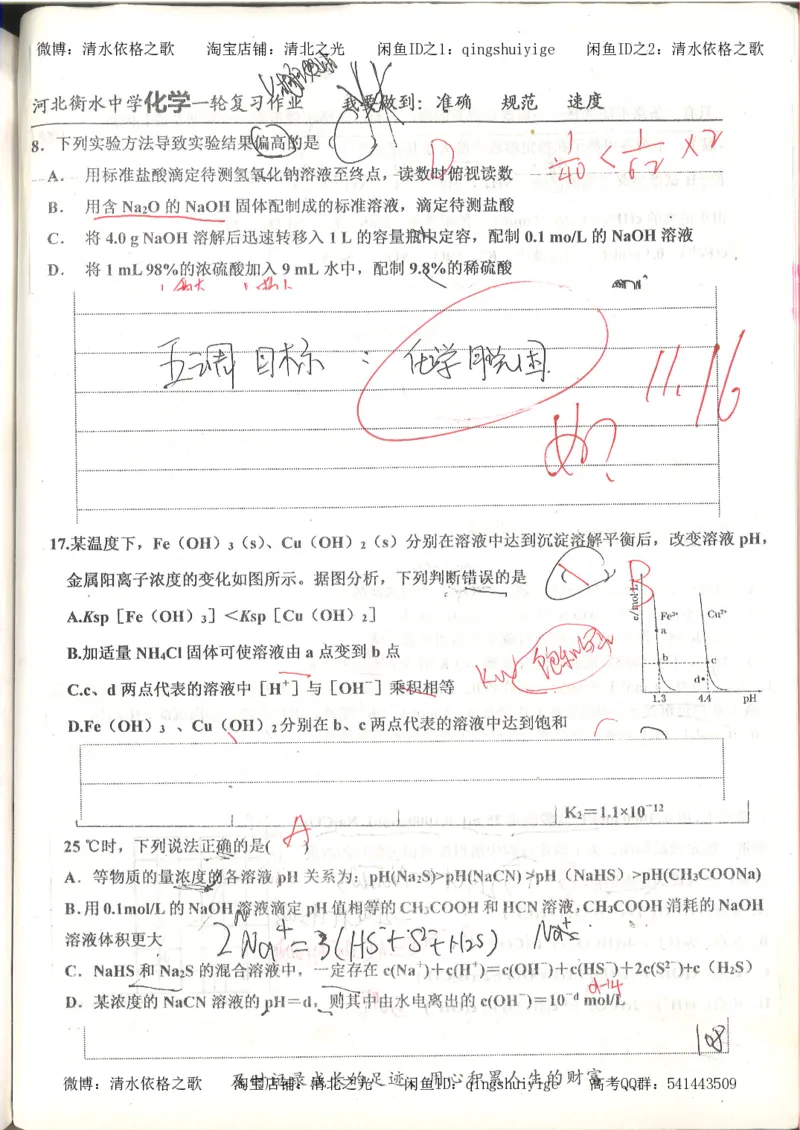 微博：清水依格之歌 淘宝店铺：清北之光 闲鱼ID之1：qingshuiyige 闲鱼ID之2：清水依格之歌
河北衡水中学化学一轮复习作业 我要做到：准确 规范 速度
8．下列实验方法导致实验结果偏高的是（ ）
D
1/40 < 1/62 ×2
A． 用标准盐酸滴定待测氢氧化钠溶液至终点，读数时俯视读数
B． 用含 Na₂O 的 NaOH 固体配制成的标准溶液，滴定待测盐酸
C． 将 4.0 g NaOH 溶解后迅速转移入 1 L 的容量瓶中定容，配制 0.1 mo/L 的 NaOH 溶液
D． 将 1 mL 98%的浓硫酸加入 9 mL 水中，配制 9.8%的稀硫酸
五调目标：化学脱困.
11.16
17.某温度下，Fe（OH）₃（s）、Cu（OH）₂（s）分别在溶液中达到沉淀溶解平衡后，改变溶液 pH，
金属阳离子浓度的变化如图所示。据图分析，下列判断错误的是
B
A.Ksp［Fe（OH）₃］＜Ksp［Cu（OH）₂］
B.加适量 NH₄Cl 固体可使溶液由 a 点变到 b 点
C.c、d 两点代表的溶液中［H⁺］与［OH⁻］乘积相等
Kw
D.Fe（OH）₃ 、Cu（OH）₂分别在 b、c 两点代表的溶液中达到饱和
c/mol·L⁻¹
Fe³⁺ Cu²⁺
a
b c
d
1.3 4.4 pH
K₂＝1.1×10⁻¹²
25 ℃时，下列说法正确的是( )
A
A．等物质的量浓度的各溶液 pH 关系为：pH(Na₂S)>pH(NaCN) >pH（NaHS）>pH(CH₃COONa)
B.用 0.1mol/L 的 NaOH 溶液滴定 pH 值相等的 CH₃COOH 和 HCN 溶液，CH₃COOH 消耗的 NaOH
溶液体积更大
2Na⁺=3(HS⁻+S²⁻+H₂S)
C．NaHS 和 Na₂S 的混合溶液中，一定存在 c(Na⁺)+c(H⁺)=c(OH⁻)+c(HS⁻)+2c(S²⁻)+c（H₂S）
d-14
D．某浓度的 NaCN 溶液的 pH＝d，则其中由水电离出的 c(OH⁻)=10⁻ᵈ mol/L
108
及时记录成长的足迹 用心积累人生的财富
微博：清水依格之歌 淘宝店铺：清北之光 闲鱼ID之1：qingshuiyige 高考QQ群：541443509